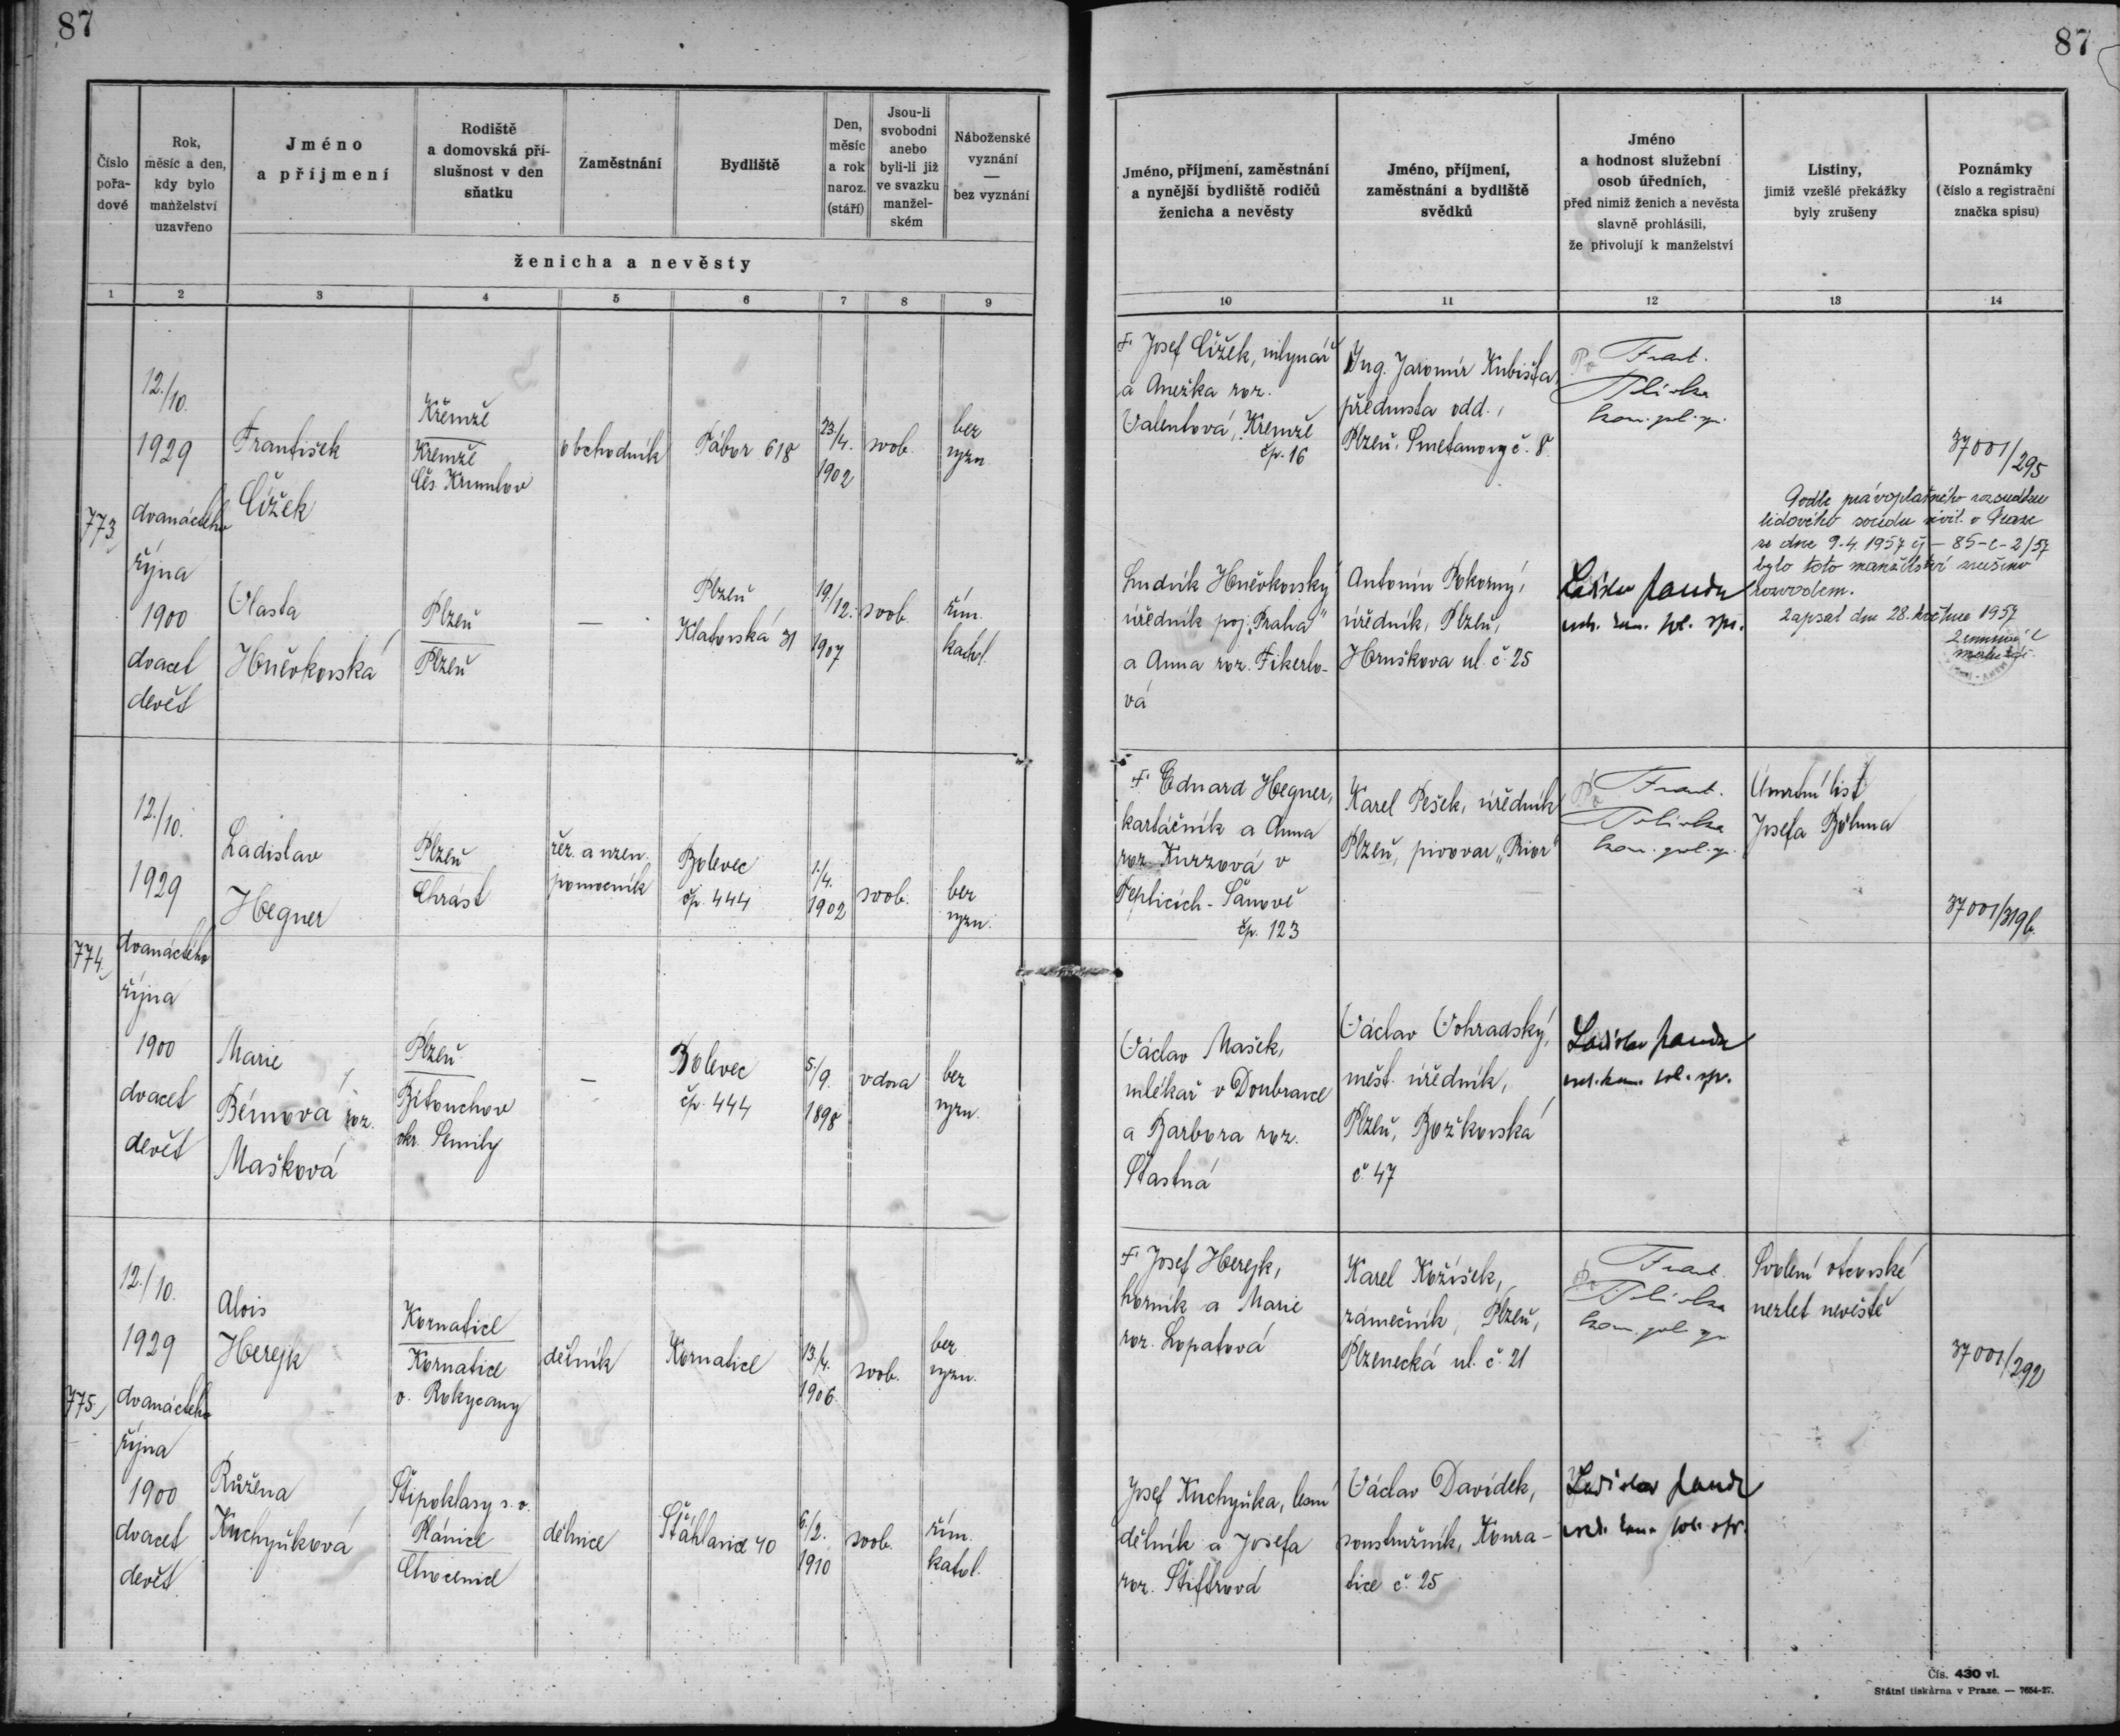 87
87
Číslo
pořa-
dové
Rok,
měsíc a den,
kdy bylo
manželství
uzavřeno
Jméno
a příjmení
Rodiště
a domovská pří-
slušnost v den
sňatku
Zaměstnání
Bydliště
Den,
měsíc
a rok
naroz.
(stáří)
Jsou-li
svobodni
anebo
byli-li již
ve svazku
manžel-
ském
Náboženské
vyznání
—
bez vyznání
ženicha a nevěsty
Jméno, příjmení, zaměstnání
a nynější bydliště rodičů
ženicha a nevěsty
Jméno, příjmení,
zaměstnání a bydliště
svědků
Jméno
a hodnost služební
osob úředních,
před nimiž ženich a nevěsta
slavně prohlásili,
že přivolují k manželství
Listiny,
jimiž vzešlé překážky
byly zrušeny
Poznámky
(číslo a registrační
značka spisu)
1 2 3 4 5 6 7 8 9 10 11 12 13 14
773
12./10.
1929
dvanáctého
října
1900
dvacet
devět
František
Čížek
Křemže
Křemže
Čes. Krumlov
obchodník
Tábor 618
23./4.
1902
svob.
bez
vyzn.
Josef Čížek, mlynář
a Anežka roz.
Valentová, Křemže
čp. 16
Ing. Jaromír Kubišta,
přednosta odd.,
Plzeň, Smetanovy č. 8
Frant.
Polívka
kom. pol. spr.
37001/295
Podle právoplatného rozsudku
lidového soudu civil. v Praze
ze dne 9.4.1957 čj – 85-C-2/57
bylo toto manželství zrušeno
rozvodem.
Zapsal dne 28. května 1957
Vlasta
Hněvkovská
Plzeň
Plzeň
—
Plzeň
Klatovská 31
19./12.
1907
svob.
řím.
katol.
Ludvík Hněvkovský
úředník poj. „Praha"
a Anna roz. Fikerlo-
vá
Antonín Pokorný,
úředník, Plzeň,
Hruškova ul. č. 25
Ladislav Janda
774.
12./10.
1929
dvanáctého
října
1900
dvacet
devět
Ladislav
Hegner
Plzeň
Chrást
řez. a uzen.
pomocník
Bolevec
čp. 444
1./4.
1902
svob.
bez
vyzn.
Eduard Hegner,
kartáčník a Anna
roz. Kurzová v
Teplicích-Šanově
čp. 123
Karel Pešek, úředník
Plzeň, pivovar „Prior"
Frant.
Polívka
kom. pol. spr.
Úmrtní list
Josefa Böhma
37001/319b.
Marie
Bémová roz.
Mašková
Plzeň
Bítouchov
okr. Semily
—
Bolevec
čp. 444
5./9.
1898
vdova
bez
vyzn.
Václav Mašek,
mlékař v Doubravce
a Barbora roz.
Šťastná
Václav Vohradský,
měst. úředník,
Plzeň, Božkovská
č. 47
Ladislav Janda
775.
12./10.
1929
dvanáctého
října
1900
dvacet
devět
Alois
Herejk
Kornatice
Kornatice
o. Rokycany
dělník
Kornatice
13./4.
1906
svob.
bez
vyzn.
Josef Herejk,
horník a Marie
roz. Lopatová
Karel Kožíšek,
zámečník, Plzeň,
Plzenecká ul. č. 21
Frant.
Polívka
kom. pol. spr.
Svolení otcovské
nezlet. nevěstě
37001/292
Růžena
Kuchyňková
Štipoklasy s. o.
Plánice
Chocenice
dělnice
Šťáhlavice 40
6./2.
1910
svob.
řím.
katol.
Josef Kuchyňka, lesní
dělník a Josefa
roz. Štiftrová
Václav Davídek,
soustružník, Konra-
tice č. 25
Ladislav Janda
Čís. 430 vl.
Státní tiskárna v Praze. — 7654-27.